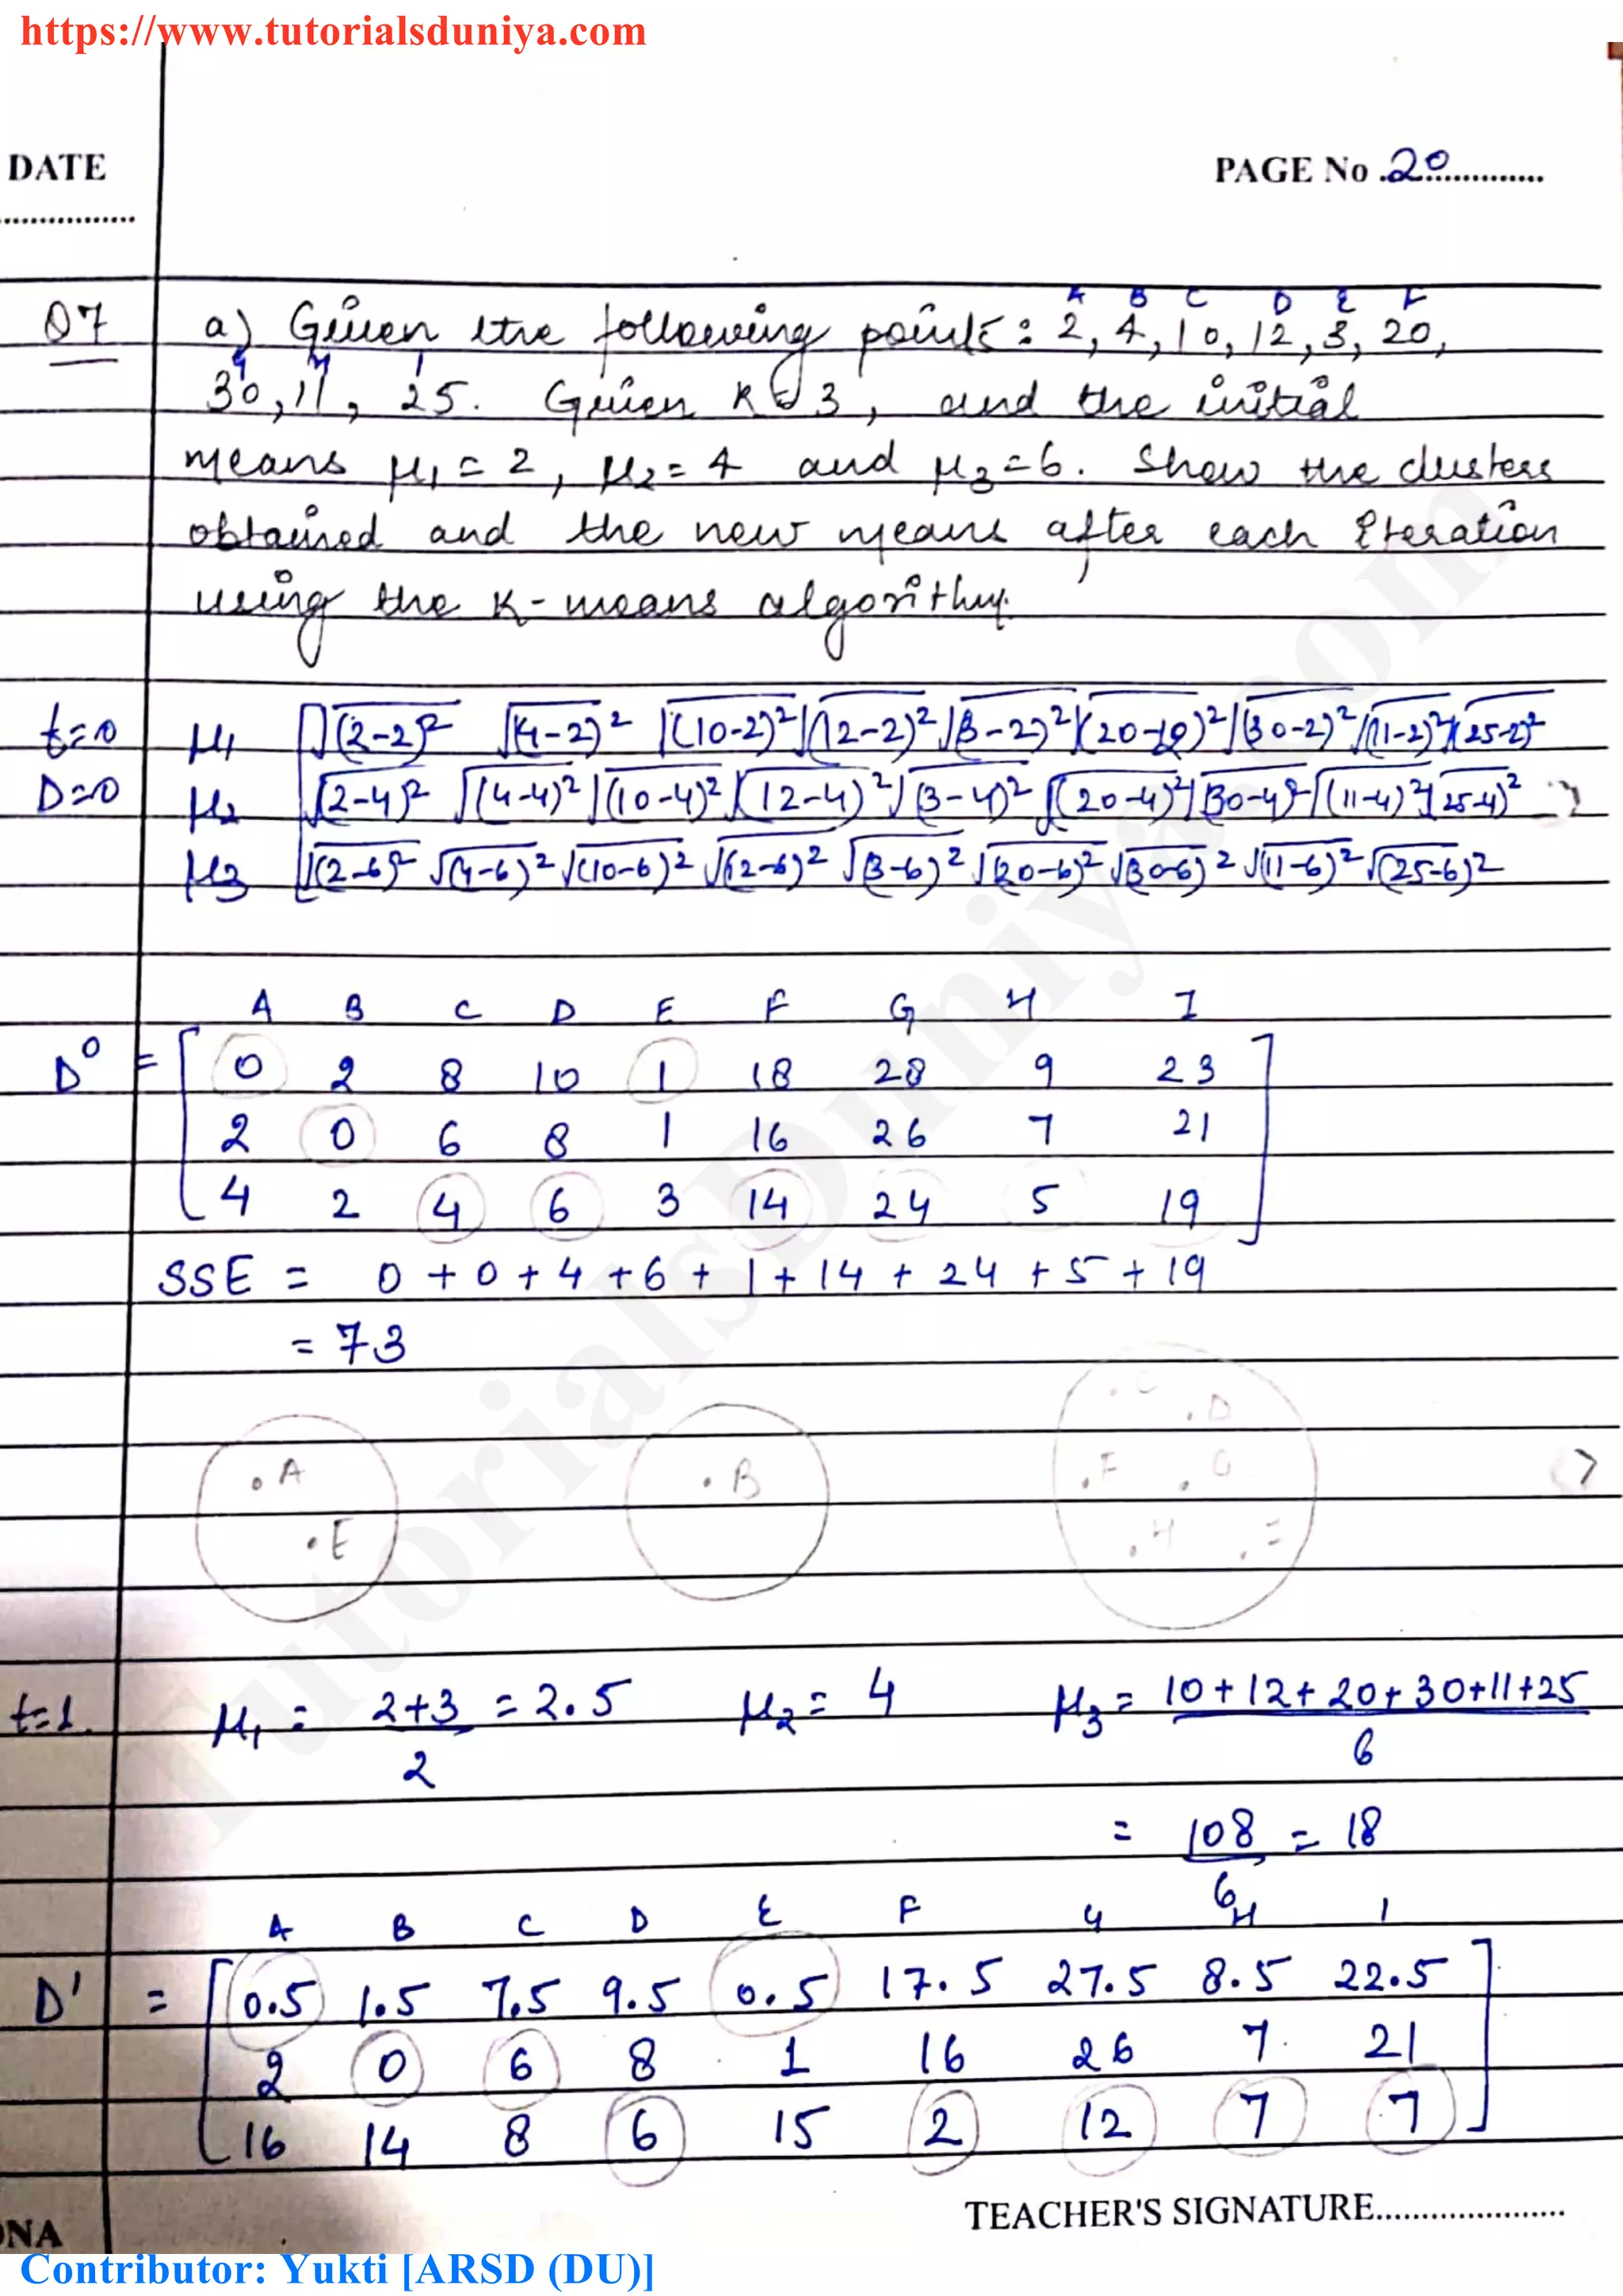 https://www.tutorialsduniya.com
DATE
PAGE No. 20
A B C D E F
Q7 a) Given the following points: 2, 4, 10, 12, 3, 20,
30, 11, 25. Given K=3, and the initial
means μ1 = 2, μ2 = 4 and μ3 = 6. Show the clusters
obtained and the new means after each iteration
using the K-means algorithm.
t=0 μ1 √(2-2)² √(4-2)² √(10-2)² √(12-2)² √(3-2)² √(20-2)² √(30-2)² √(11-2)² √(25-2)²
D=0 μ2 √(2-4)² √(4-4)² √(10-4)² √(12-4)² √(3-4)² √(20-4)² √(30-4)² √(11-4)² √(25-4)²
μ3 √(2-6)² √(4-6)² √(10-6)² √(12-6)² √(3-6)² √(20-6)² √(30-6)² √(11-6)² √(25-6)²
A B C D E F G H I
D⁰ = 0 2 8 10 1 18 28 9 23
2 0 6 8 1 16 26 7 21
4 2 4 6 3 14 24 5 19
SSE = 0 + 0 + 4 + 6 + 1 + 14 + 24 + 5 + 19
= 73
.C
.D
.A .B .F .G
.E .H .I
t=1. μ1 = 2+3/2 = 2.5 μ2 = 4 μ3 = 10+12+20+30+11+25/6
= 108/6 = 18
A B C D E F G H I
D' = 0.5 1.5 7.5 9.5 0.5 17.5 27.5 8.5 22.5
2 0 6 8 1 16 26 7 21
16 14 8 6 15 2 12 7 7
TEACHER'S SIGNATURE
ONA
Contributor: Yukti [ARSD (DU)]
TutorialsDuniya.com